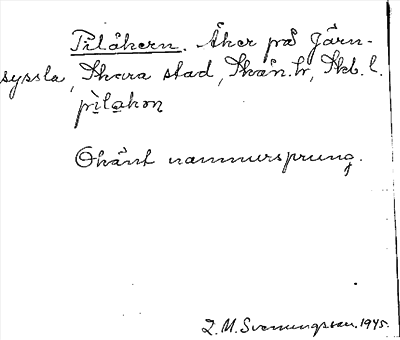 Pilåkern. Åker på Järn-
syssla, Skara stad, Skån. hr, Skb. l.
pìlakon
Okänt namnursprung.
L. M. Svenungsson. 1945.